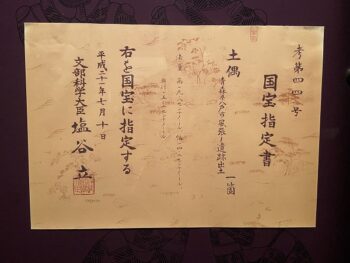 考第四四号
国宝指定書
土偶 一箇
青森県八戸市風張1遺跡出土
右を国宝に指定する
平成二十一年七月十日
文部科学大臣 塩谷立